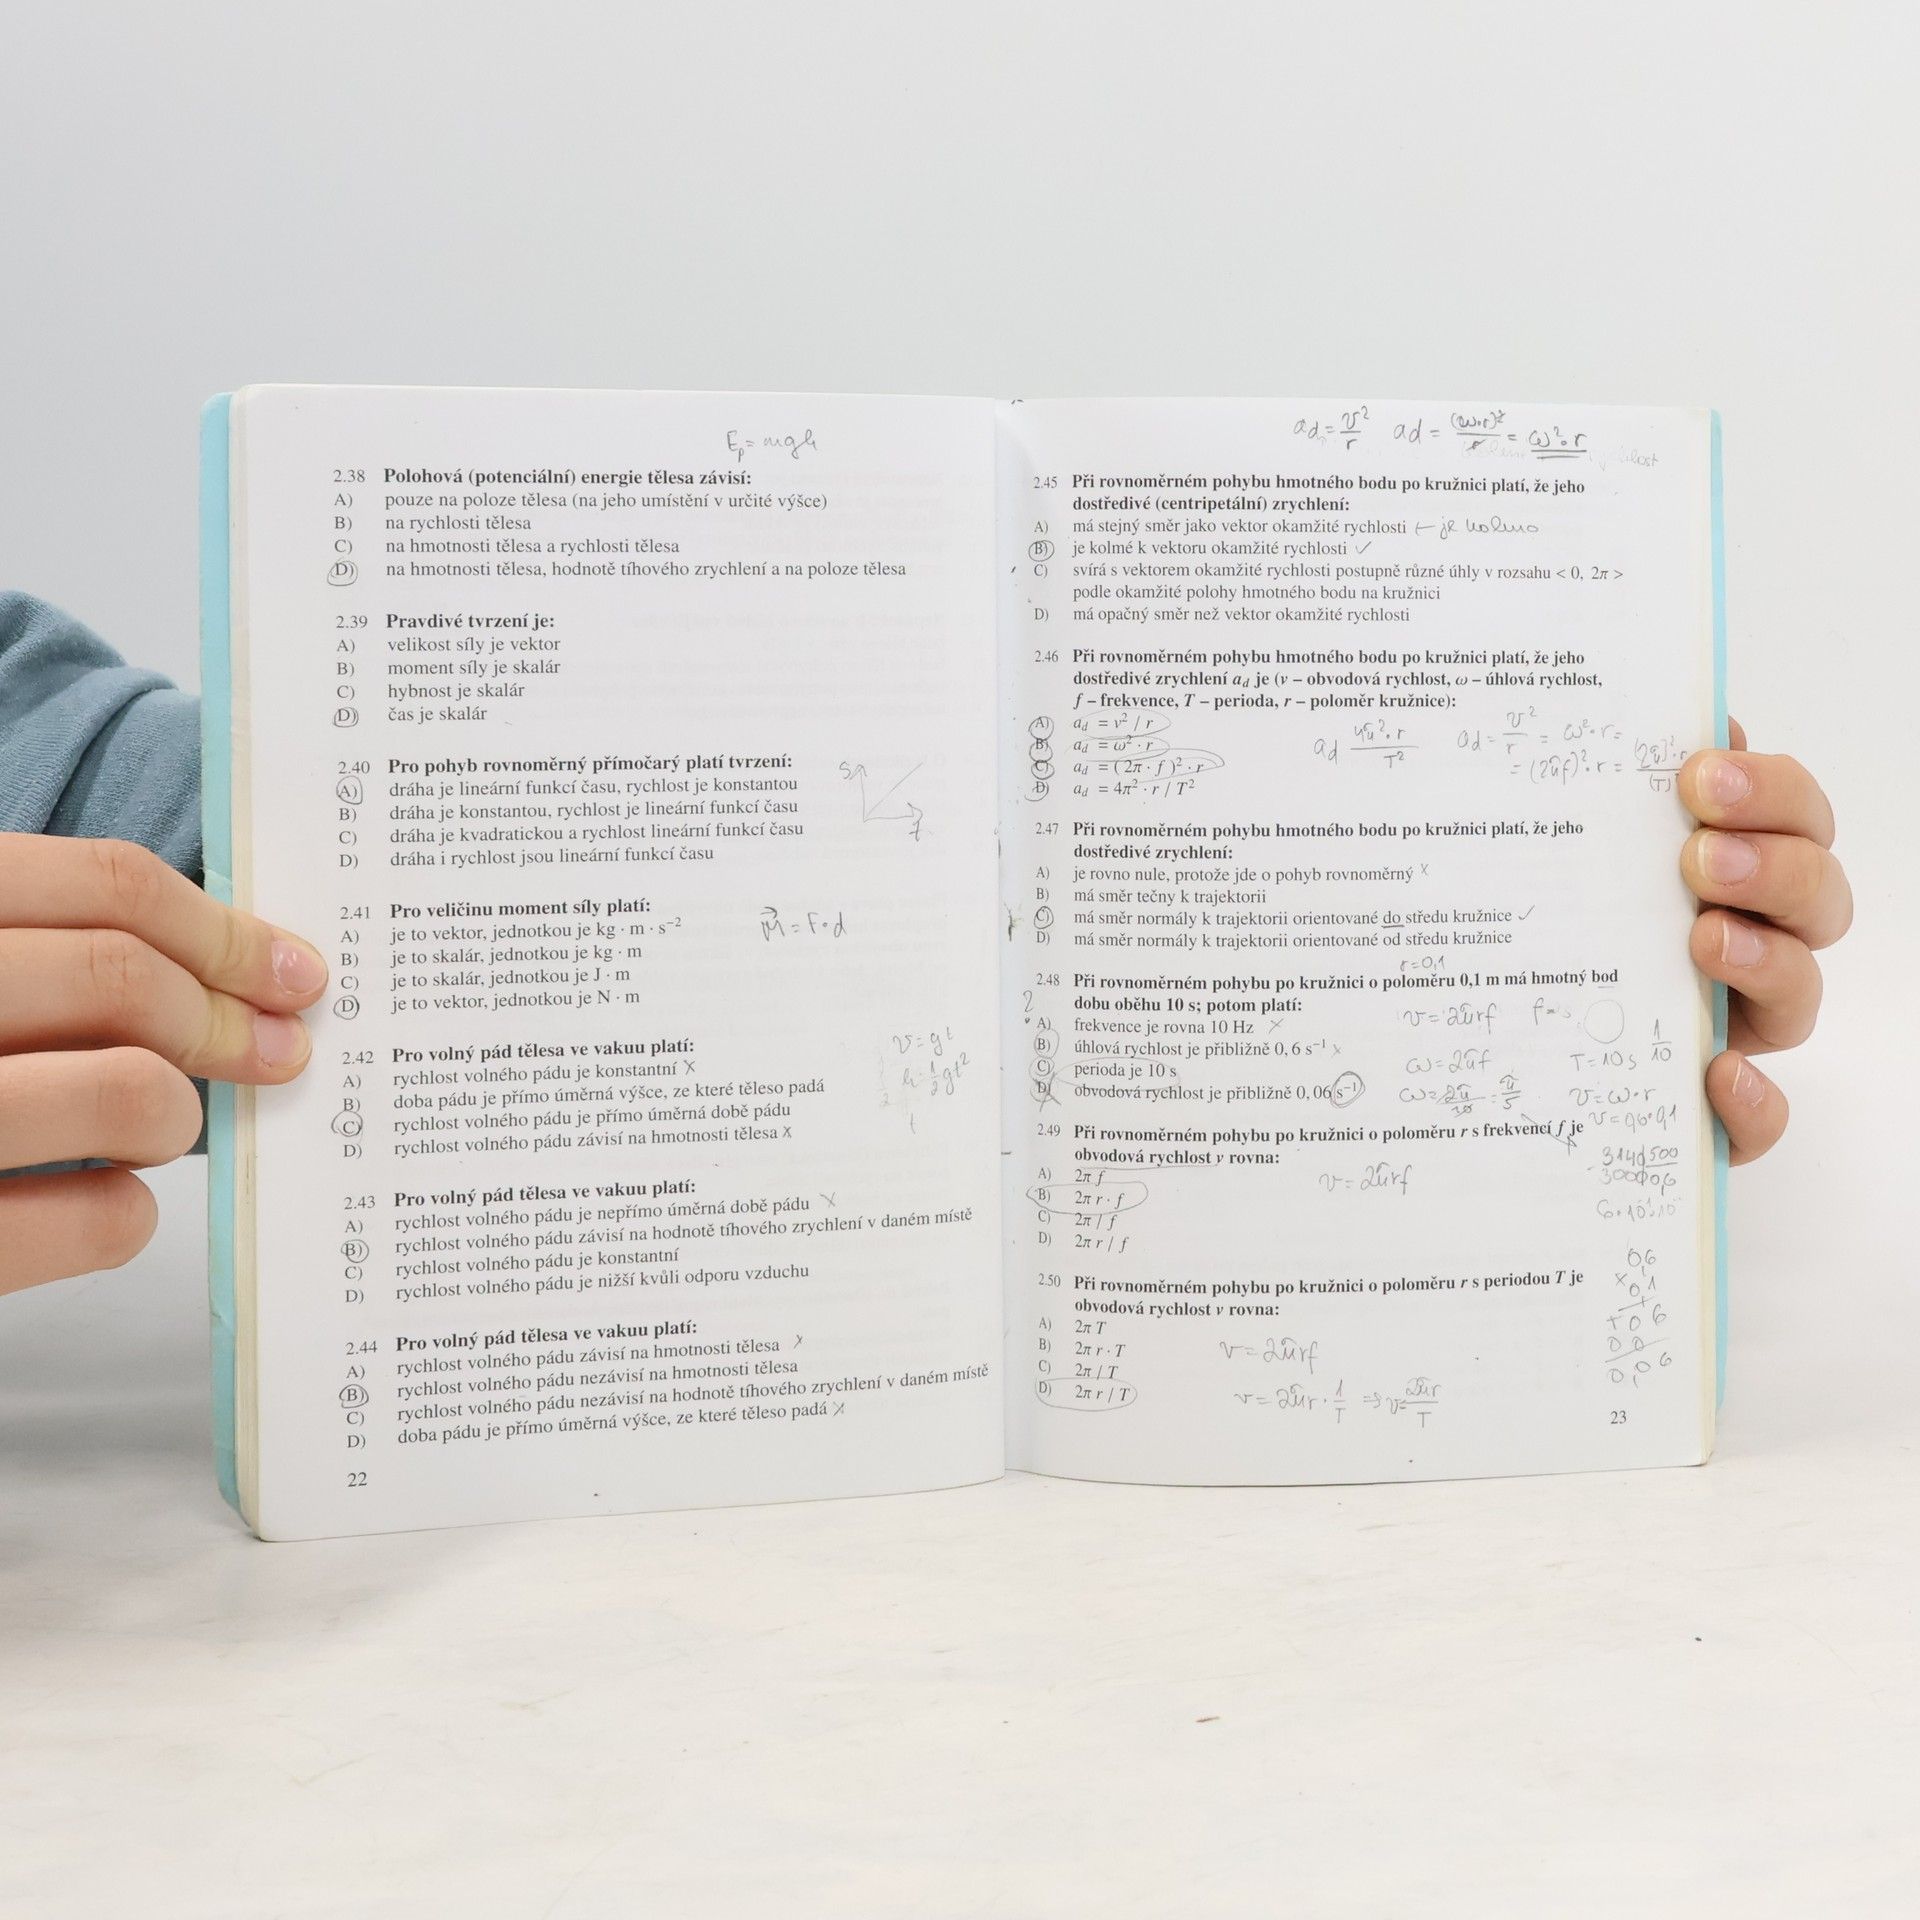 E_p = mgh
2.38 Polohová (potenciální) energie tělesa závisí:
A) pouze na poloze tělesa (na jeho umístění v určité výšce)
B) na rychlosti tělesa
C) na hmotnosti tělesa a rychlosti tělesa
D) na hmotnosti tělesa, hodnotě tíhového zrychlení a na poloze tělesa
2.39 Pravdivé tvrzení je:
A) velikost síly je vektor
B) moment síly je skalár
C) hybnost je skalár
D) čas je skalár
2.40 Pro pohyb rovnoměrný přímočarý platí tvrzení:
A) dráha je lineární funkcí času, rychlost je konstantou
B) dráha je konstantou, rychlost je lineární funkcí času
C) dráha je kvadratickou a rychlost lineární funkcí času
D) dráha i rychlost jsou lineární funkcí času
2.41 Pro veličinu moment síly platí:
A) je to vektor, jednotkou je kg · m · s⁻²
B) je to skalár, jednotkou je kg · m
C) je to skalár, jednotkou je J · m
D) je to vektor, jednotkou je N · m
M = F · d
2.42 Pro volný pád tělesa ve vakuu platí:
A) rychlost volného pádu je konstantní x
B) doba pádu je přímo úměrná výšce, ze které těleso padá
C) rychlost volného pádu je přímo úměrná době pádu
D) rychlost volného pádu závisí na hmotnosti tělesa x
v = gt
h = 1/2 gt²
2.43 Pro volný pád tělesa ve vakuu platí:
A) rychlost volného pádu je nepřímo úměrná době pádu x
B) rychlost volného pádu závisí na hodnotě tíhového zrychlení v daném místě
C) rychlost volného pádu je konstantní
D) rychlost volného pádu je nižší kvůli odporu vzduchu
2.44 Pro volný pád tělesa ve vakuu platí:
A) rychlost volného pádu závisí na hmotnosti tělesa x
B) rychlost volného pádu nezávisí na hmotnosti tělesa
C) rychlost volného pádu nezávisí na hodnotě tíhového zrychlení v daném místě
D) doba pádu je přímo úměrná výšce, ze které těleso padá x
22
ad = v²/r ad = (ω·r)²/r = ω²·r
2.45 Při rovnoměrném pohybu hmotného bodu po kružnici platí, že jeho
dostředivé (centripetální) zrychlení:
A) má stejný směr jako vektor okamžité rychlosti ← je kolmo
B) je kolmé k vektoru okamžité rychlosti ✓
C) svírá s vektorem okamžité rychlosti postupně různé úhly v rozsahu < 0, 2π >
podle okamžité polohy hmotného bodu na kružnici
D) má opačný směr než vektor okamžité rychlosti
2.46 Při rovnoměrném pohybu hmotného bodu po kružnici platí, že jeho
dostředivé zrychlení a_d je (v – obvodová rychlost, ω – úhlová rychlost,
f – frekvence, T – perioda, r – poloměr kružnice):
A) a_d = v² / r
B) a_d = ω² · r
C) a_d = ( 2π · f )² · r
D) a_d = 4π² · r / T²
ad 4π²·r / T²
ad = v²/r = ω²·r =
= (2πf)²·r =
2.47 Při rovnoměrném pohybu hmotného bodu po kružnici platí, že jeho
dostředivé zrychlení:
A) je rovno nule, protože jde o pohyb rovnoměrný x
B) má směr tečny k trajektorii
C) má směr normály k trajektorii orientované do středu kružnice ✓
D) má směr normály k trajektorii orientované od středu kružnice
r=0,1
2.48 Při rovnoměrném pohybu po kružnici o poloměru 0,1 m má hmotný bod
dobu oběhu 10 s; potom platí:
A) frekvence je rovna 10 Hz x
B) úhlová rychlost je přibližně 0, 6 s⁻¹ x
C) perioda je 10 s
D) obvodová rychlost je přibližně 0, 06 s⁻¹
?
v = 2πrf
ω = 2πf T = 10s 1/10
ω = 2π/10 = π/5 v = ω·r
v = 0,6·0,1
2.49 Při rovnoměrném pohybu po kružnici o poloměru r s frekvencí f je
obvodová rychlost v rovna:
A) 2π f
B) 2π r · f
C) 2π / f
D) 2π r / f
v = 2πrf
2.50 Při rovnoměrném pohybu po kružnici o poloměru r s periodou T je
obvodová rychlost v rovna:
A) 2π T
B) 2π r · T
C) 2π / T
D) 2π r / T
v = 2πrf
v = 2πr · 1/T ⇒ v = 2πr/T
0,6
x 0,1
0,06
23